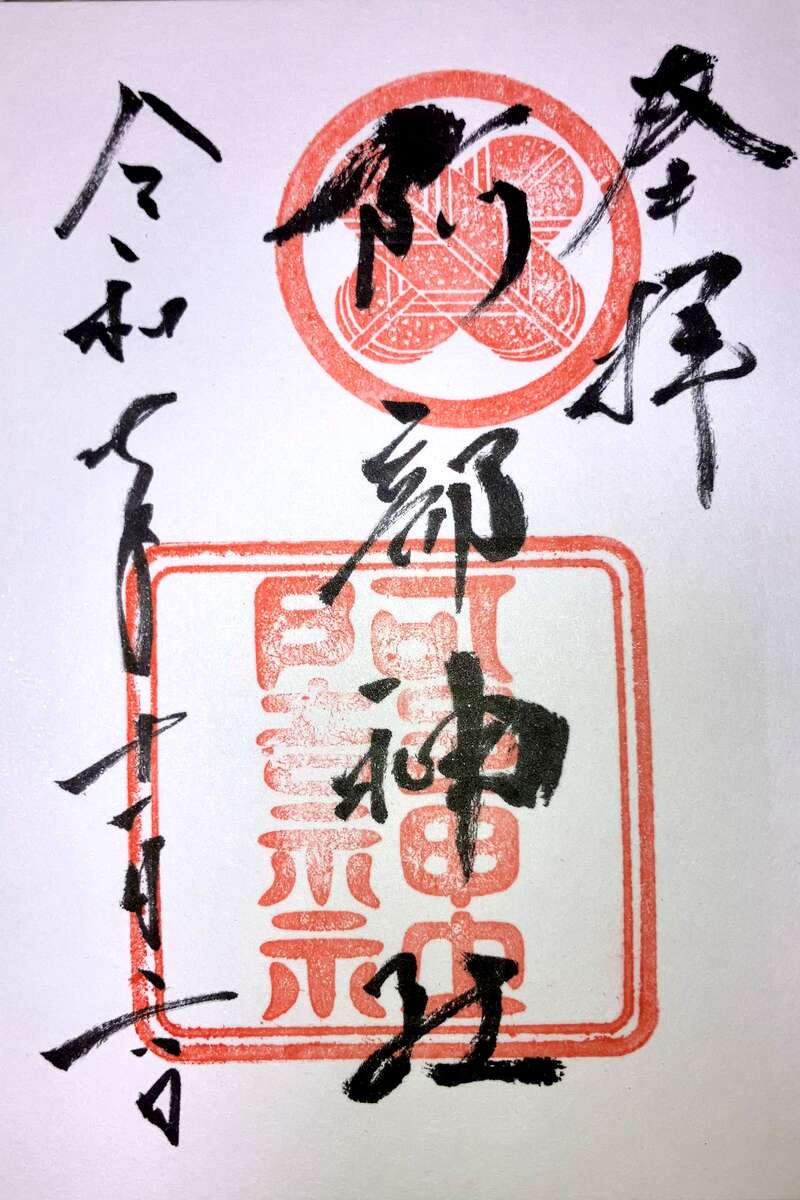 奉拝
阿部神社
阿部神社
令和七年十一月六日